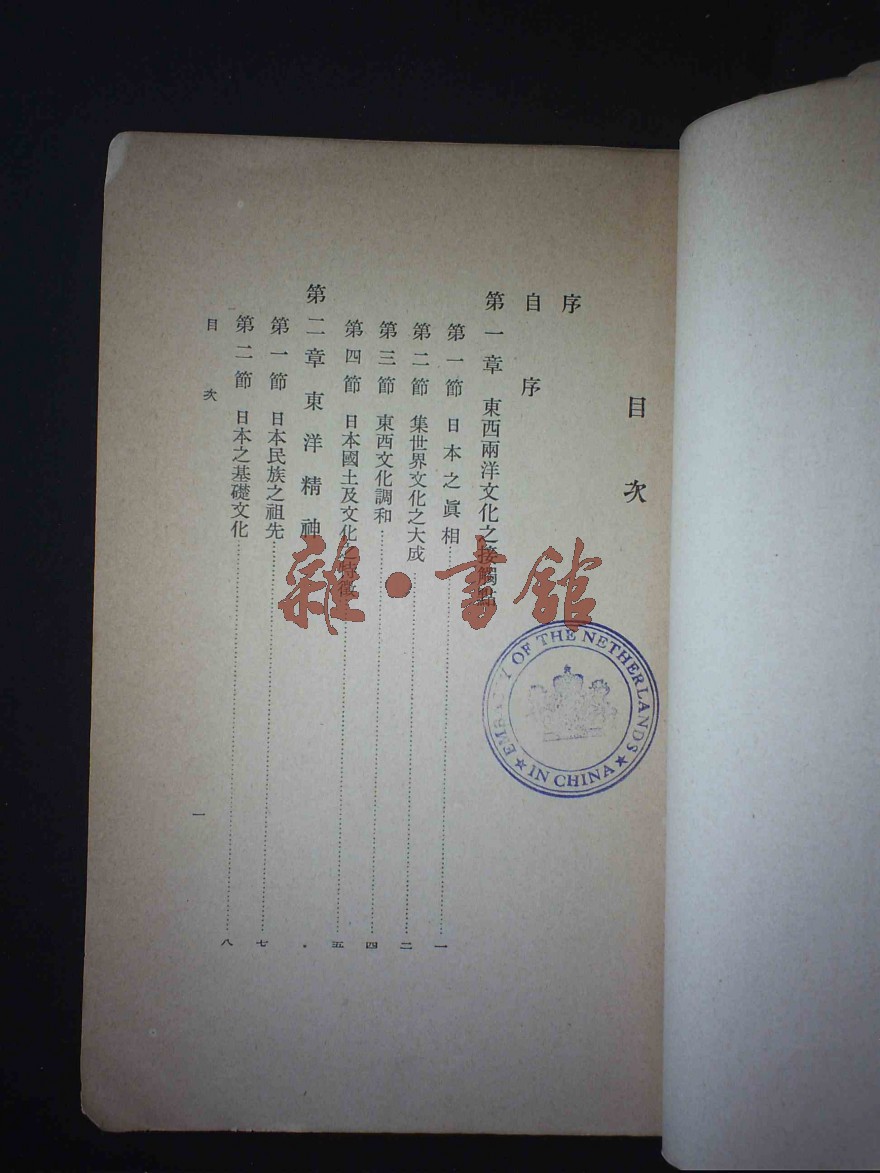 目次
序
自序
第一章 東西兩洋文化之接觸點
第一節 日本之眞相……一
第二節 集世界文化之大成……二
第三節 東西文化調和……四
第四節 日本國土及文化之特徵……五
第二章 東洋精神
第一節 日本民族之祖先……七
第二節 日本之基礎文化……八
目次
一
雜·書館
EMBASSY OF THE NETHERLANDS
★ IN CHINA ★